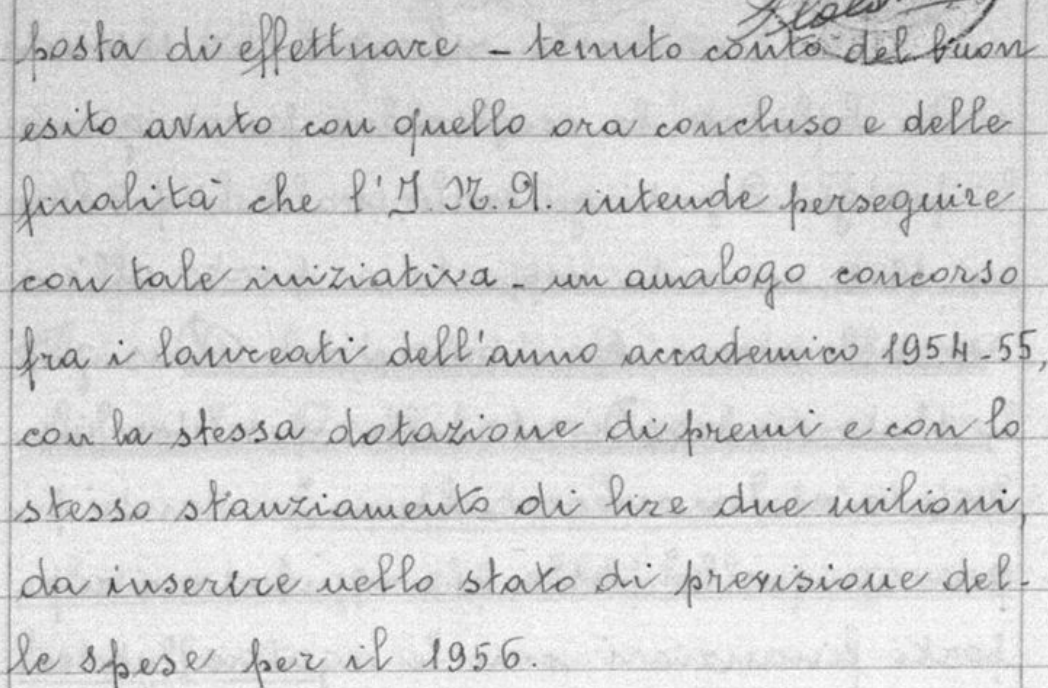 posta di effettuare - tenuto conto del buon
esito avuto con quello ora concluso e delle
finalità che l'I.N.A. intende perseguire
con tale iniziativa - un analogo concorso
fra i laureati dell'anno accademico 1954-55,
con la stessa dotazione di premi e con lo
stesso stanziamento di lire due milioni,
da inserire nello stato di previsione del-
le spese per il 1956.